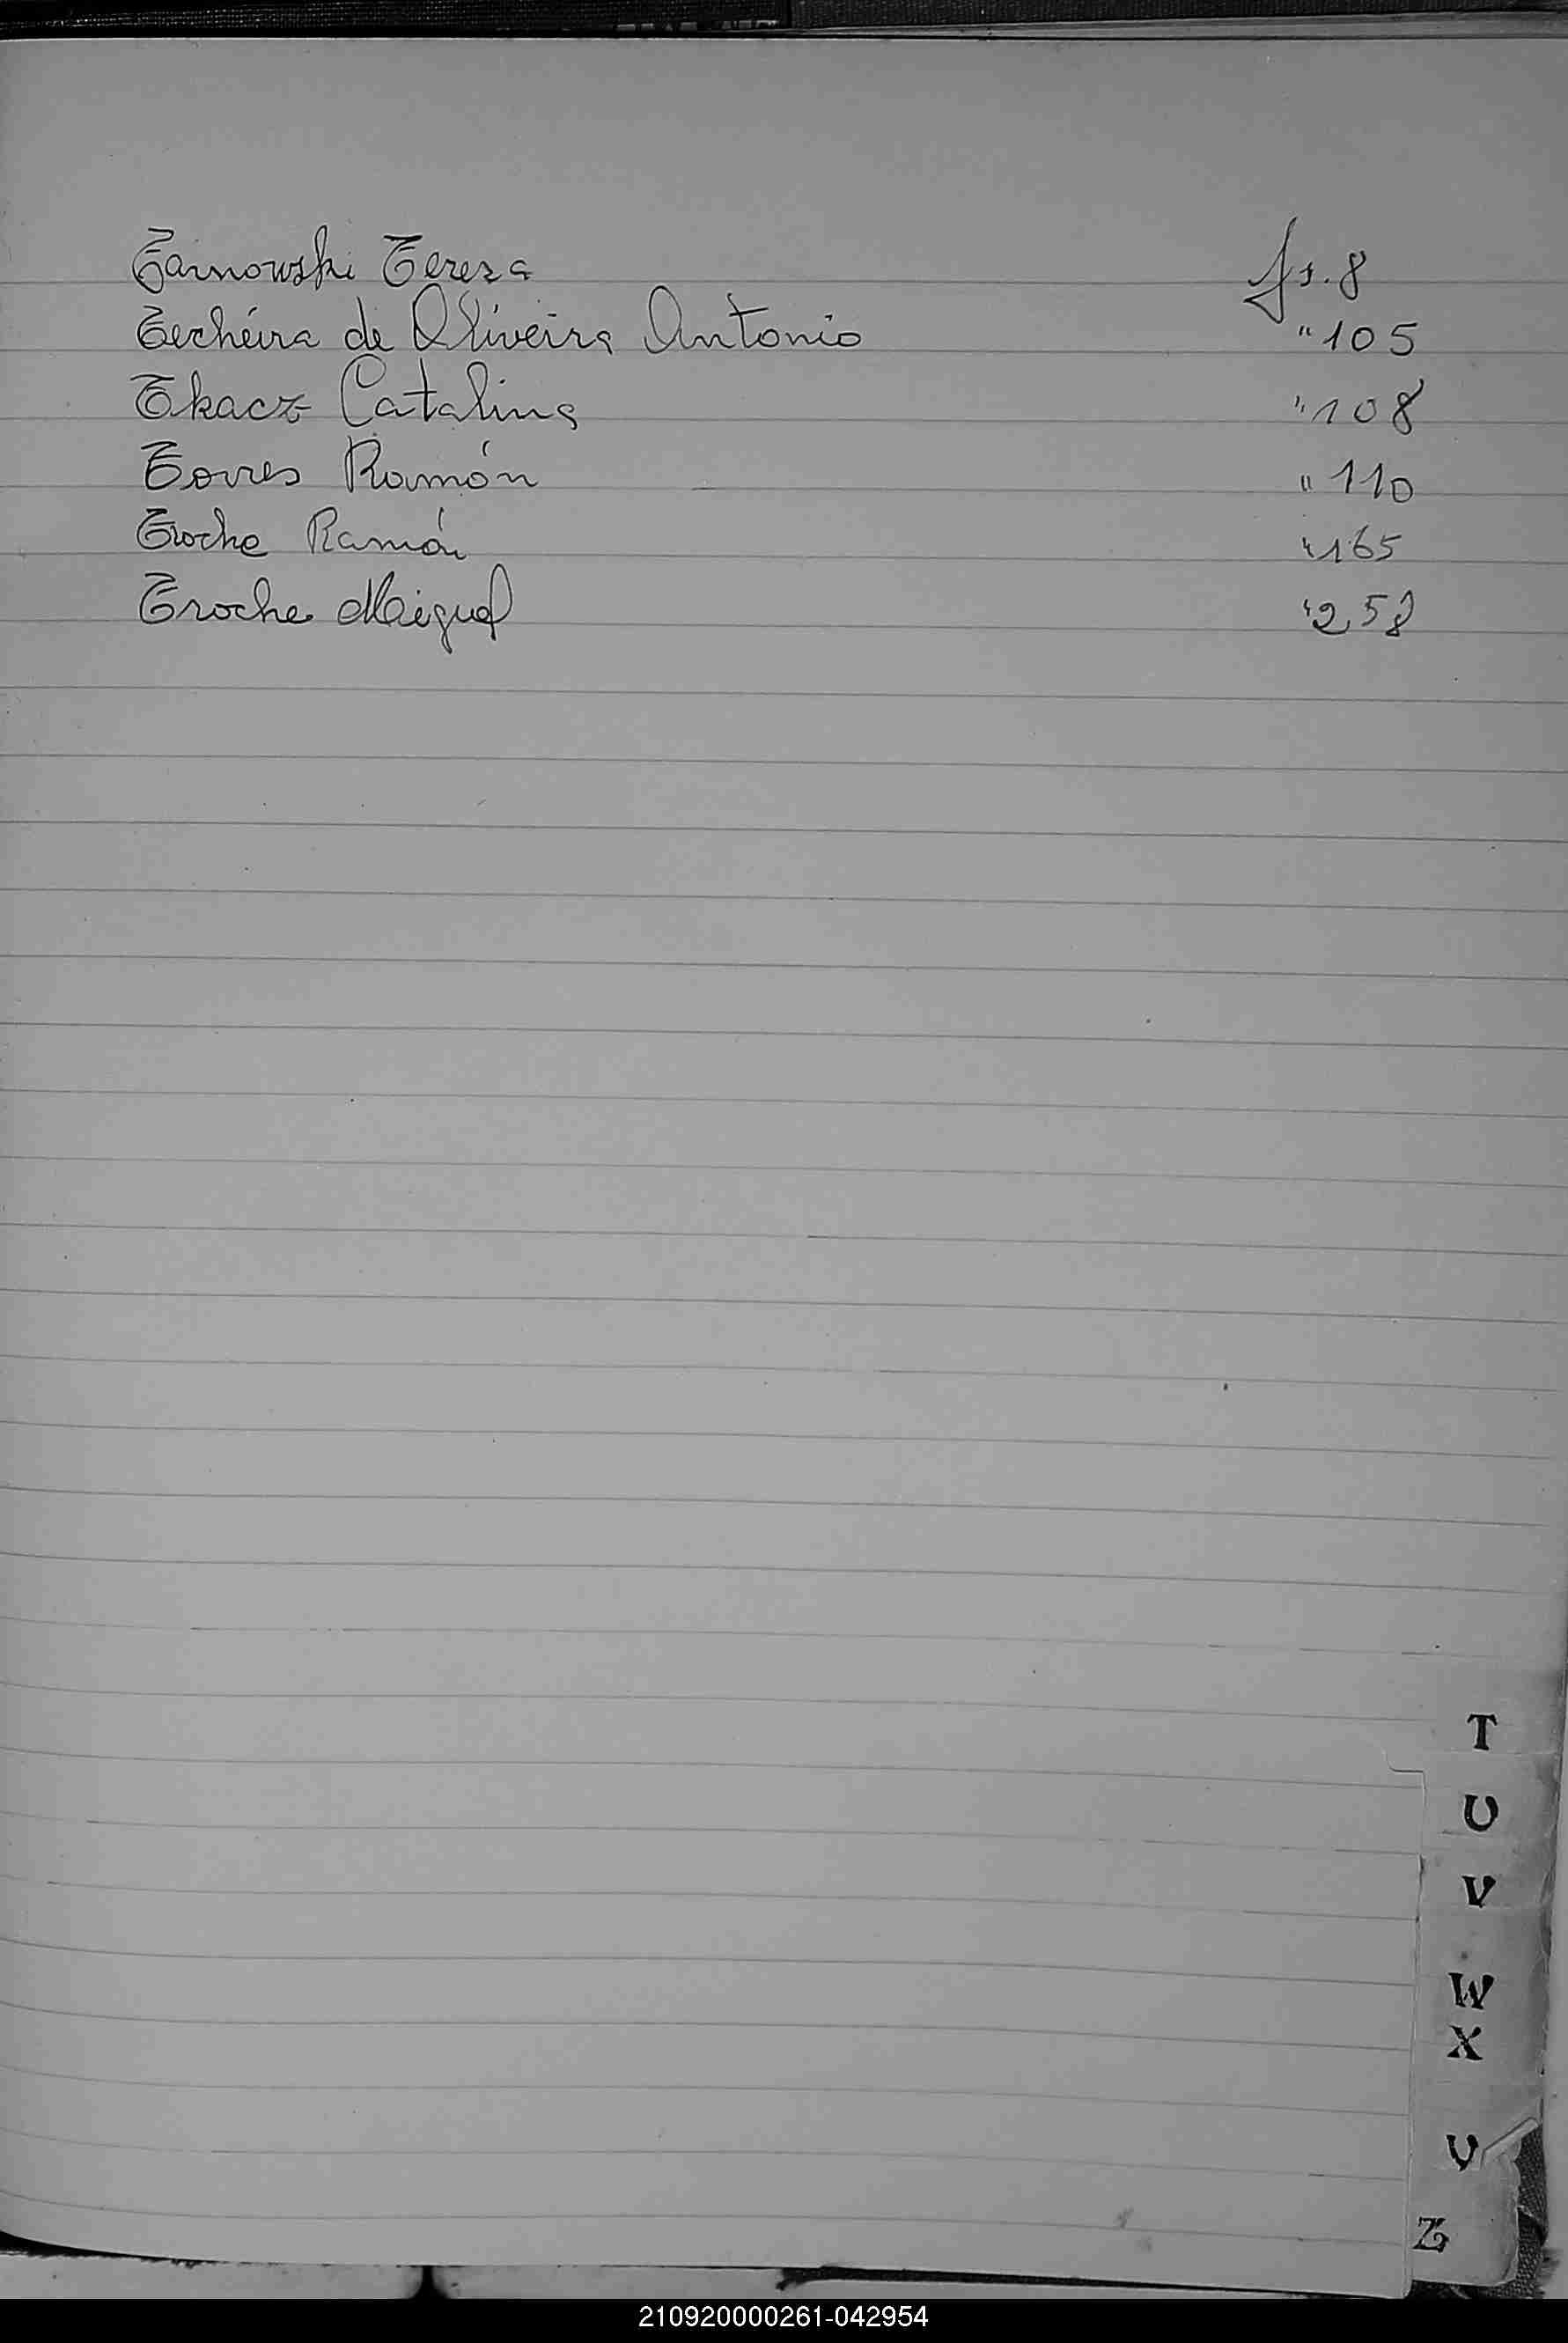 Tarnowski Tereza fs. 8
Techéira de Oliveira Antonio " 105
Tkacz Catalina " 108
Torres Ramón " 110
Troche Ramón " 165
Troche Miguel " 258
T
U
V
W
X
Y
Z
210920000261-042954